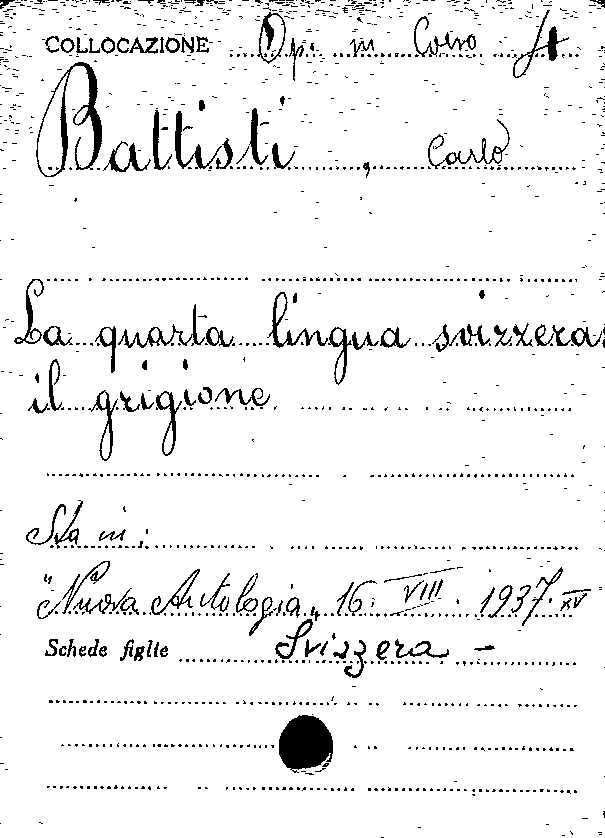 COLLOCAZIONE Op. in Corso
Battisti, Carlo
La quarta lingua svizzera:
il grigione
Sta in:
"Nuova Antologia" 16. VIII. 1937. XV
Schede figlie Svizzera -